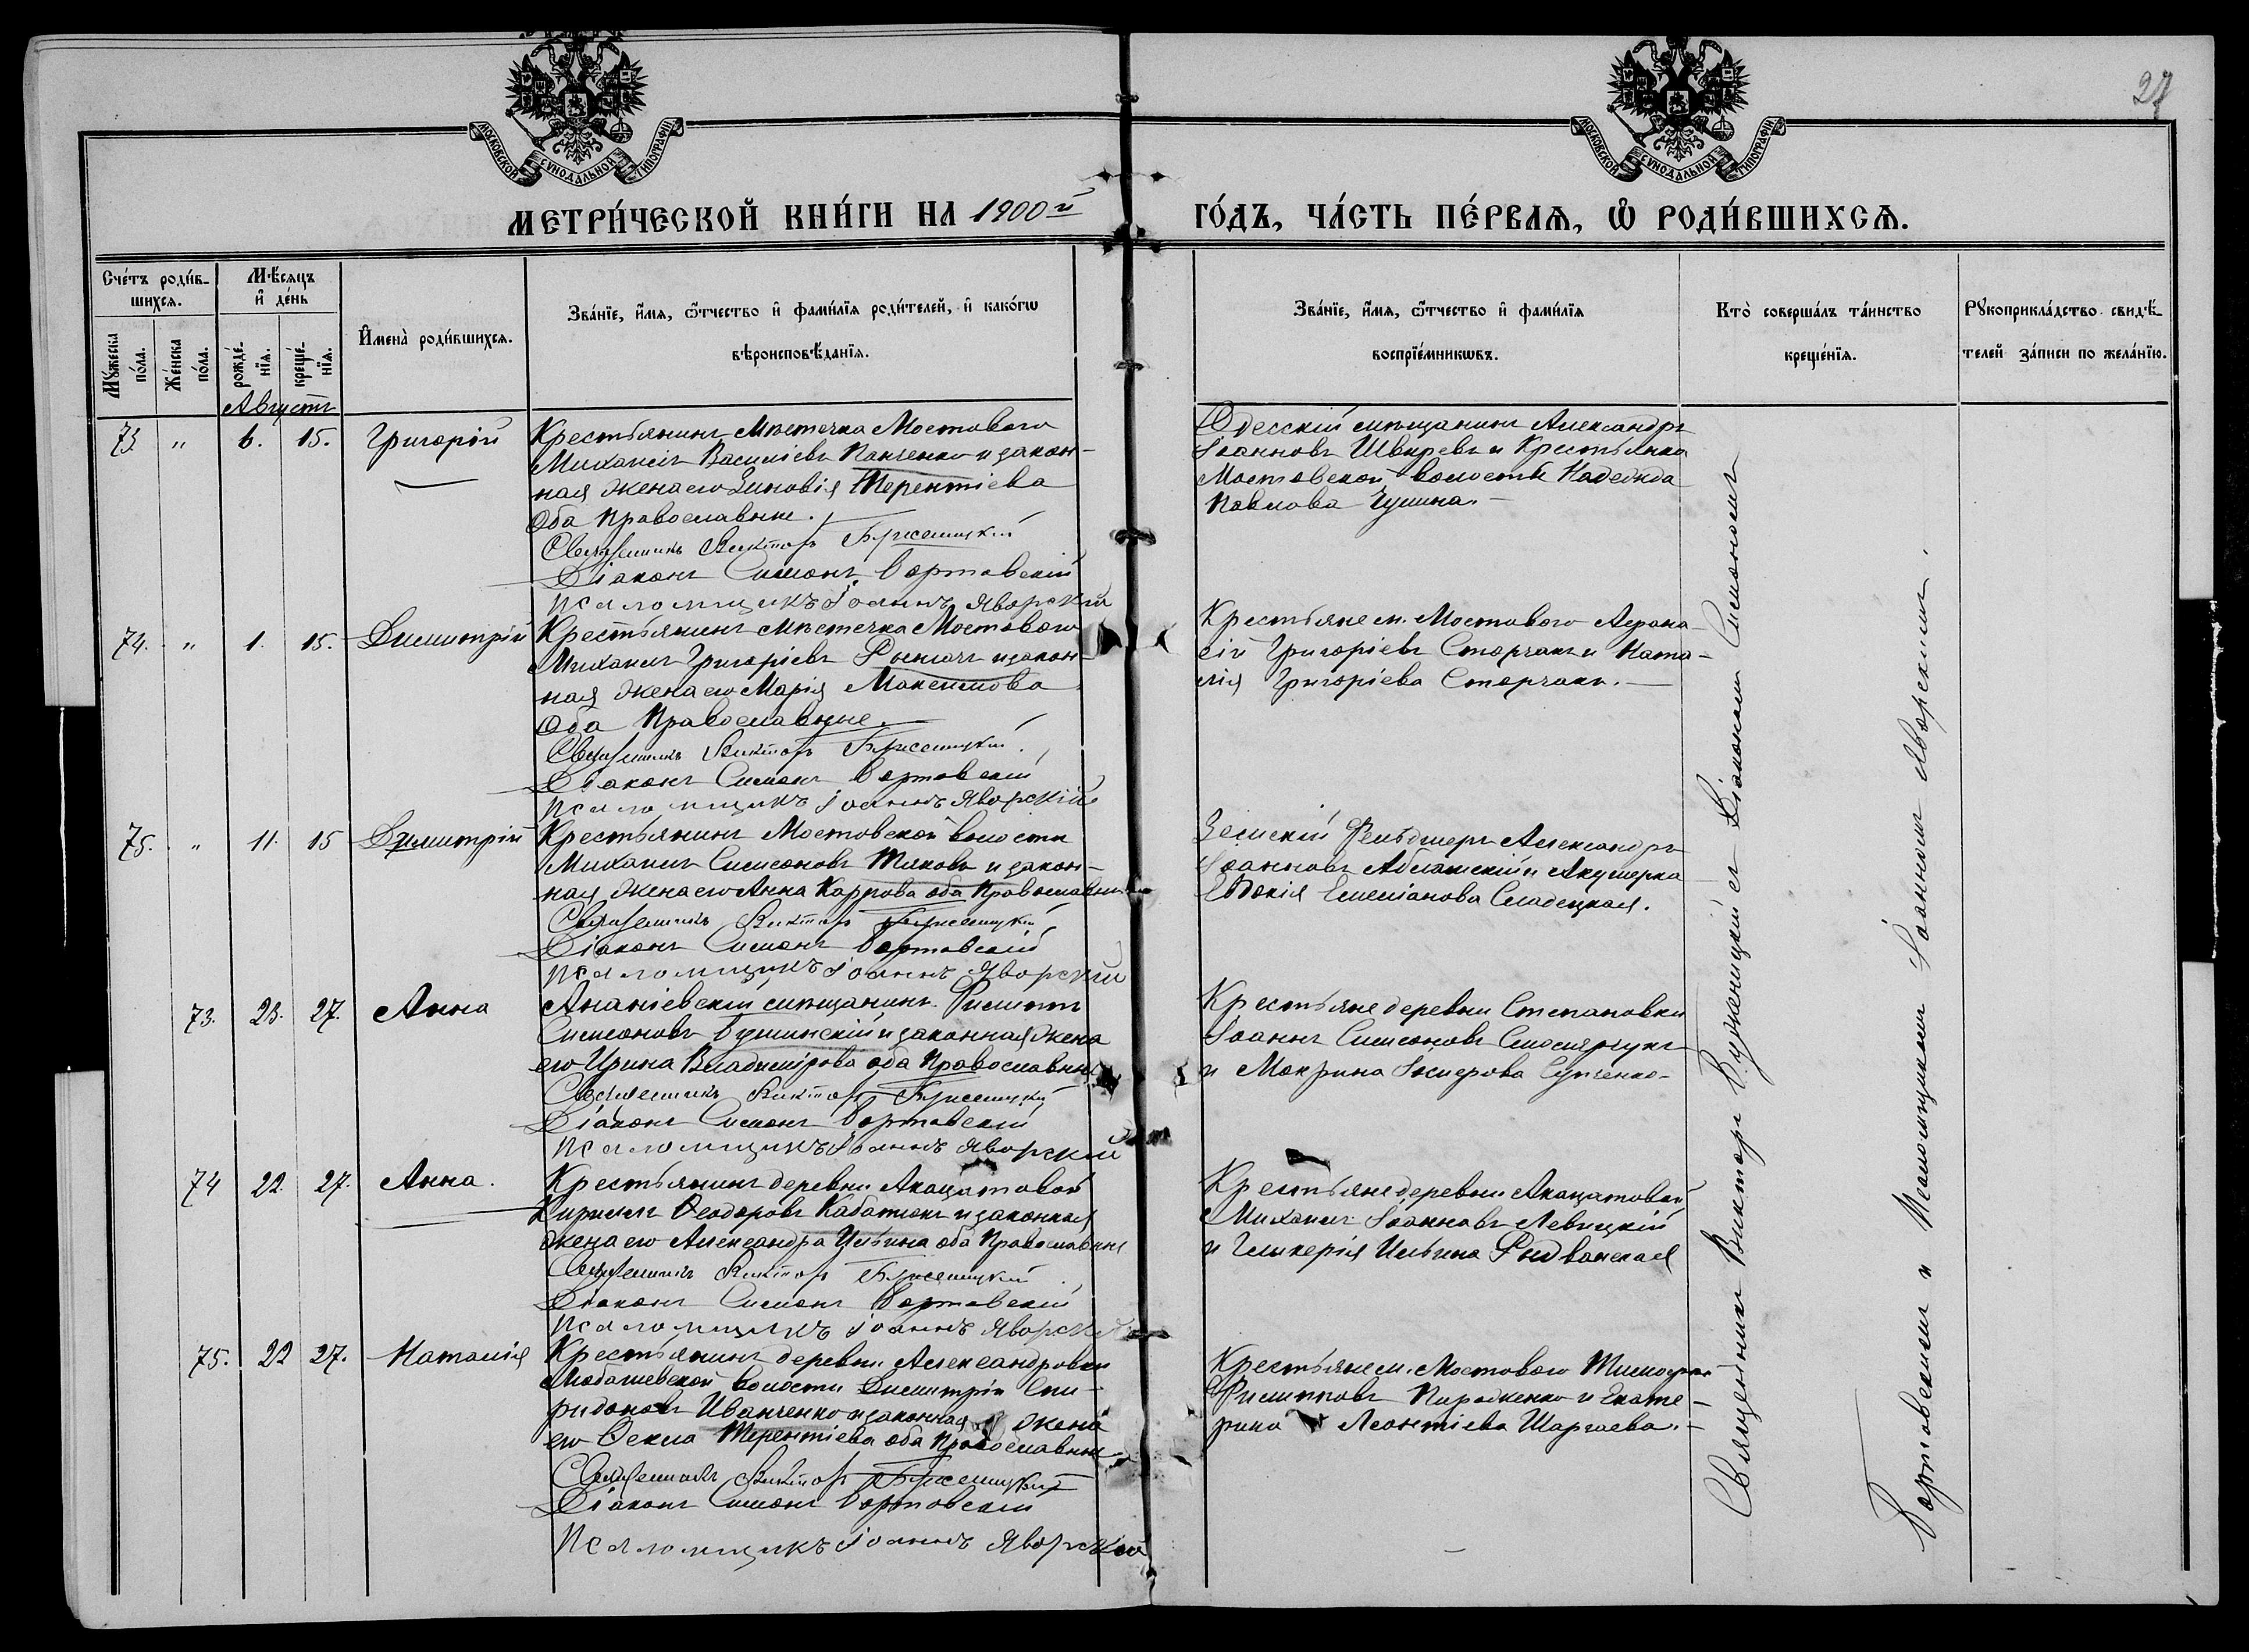 27
МОСКОВСКОЙ СѴНОДАЛЬНОЙ ТИПОГРАФІИ
МОСКОВСКОЙ СѴНОДАЛЬНОЙ ТИПОГРАФІИ
МЕТРИ́ЧЕСКОЙ КНИ́ГИ НА 1900й ГО́ДЪ, ЧА́СТЬ ПЕ́РВАѦ, Ѡ РОДИ́ВШИХСѦ.
Сче́тъ роди́в-
шихсѧ.
Мꙋ́жеска по́ла.
Же́нска по́ла.
Мѣ́сѧцъ
и҆ де́нь
рожде́-нїѧ.
креще́-нїѧ.
И҆мена̀ роди́вшихсѧ.
Зва́нїе, и҆́мѧ, ѻ҆́тчество и҆ фами́лїѧ роди́телей, и҆ како́гѡ
вѣроисповѣ́данїѧ.
Зва́нїе, и҆́мѧ, ѻ҆́тчество и҆ фами́лїѧ
воспрїе́мникѡвъ.
Кто̀ соверша́лъ та́инство
креще́нїѧ.
Рꙋкоприкла́дство свидѣ́-
телей за́писи по жела́нїю.
Августъ
73. " 6. 15. Григорій
Крестьянинъ мѣстечка Мостового
Михаилъ Василіевъ Панченко и закон-
ная жена его Зиновія Терентіева
Оба Православные.
Священникъ Викторъ Буженицкій
Діаконъ Симонъ Бортовскій
Псаломщикъ Іоаннъ Яворскій
Одесскій мѣщанинъ Александръ
Іоанновъ Швыревъ и Крестьянка
Мостовской волости Надежда
Павлова Гущина.
74. " 1. 15. Димитрій
Крестьянинъ мѣстечка Мостового
Михаилъ Григоріевъ и закон-
ная жена его Марія Максимова
Оба Православные.
Священникъ Викторъ Буженицкій
Діаконъ Симонъ Бортовскій
Псаломщикъ Іоаннъ Яворскій
Крестьяне м. Мостового Афана-
сій Григоріевъ Сторчакъ и Ната-
лія Григоріева Сторчакъ.
75. " 11. 15 Димитрій
Крестьянинъ Мостовской волости
Михаилъ Симеоновъ Шляховъ и закон-
ная жена его Анна Карпова оба Православные
Священникъ Викторъ Буженицкій
Діаконъ Симонъ Бортовскій
Псаломщикъ Іоаннъ Яворскій
Земскій Фельдшеръ Александръ
Іоанновъ и Акушерка
Евдокія Емеліанова Сладецкая.
73. 23. 27. Анна
Ананіевскій мѣщанинъ Филиппъ
Симеоновъ Бушинскій и законная жена
его Ирина Владимірова оба Православные
Священникъ Викторъ Буженицкій
Діаконъ Симонъ Бортовскій
Псаломщикъ Іоаннъ Яворскій
Крестьяне деревни Степановки
Іоаннъ Симеоновъ Смолярчукъ
и Макрина Супченко
74 22. 27. Анна.
Крестьянинъ деревни Акацатовой
Кириллъ Ѳеодоровъ Кабатюкъ и законная
жена его Александра Ильина оба Православные
Священникъ Викторъ Буженицкій
Діаконъ Симонъ Бортовскій
Псаломщикъ Іоаннъ Яворскій
Крестьяне деревни Акацатовой
Михаилъ Іоанновъ Левицкій
и Гликерія Ильина Рыдванская
75. 22 27. Наталія
Крестьянинъ деревни Александровки
Любашевской волости Димитрій Спи-
ридоновъ Иванченко и законная жена
его Ѳекла Терентіева оба Православные
Священникъ Викторъ Буженицкій
Діаконъ Симонъ Бортовскій
Псаломщикъ Іоаннъ Яворскій
Крестьяне м. Мостового Тимофей
Филипповъ Пироженко и Екате-
рина Леонтіева Шаргаева.
Священникъ Викторъ Буженицкій съ Діакономъ Симономъ
Бортовскимъ и Псаломщикомъ Іоанномъ Яворскимъ.